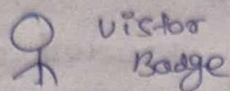 Vistor
Badge